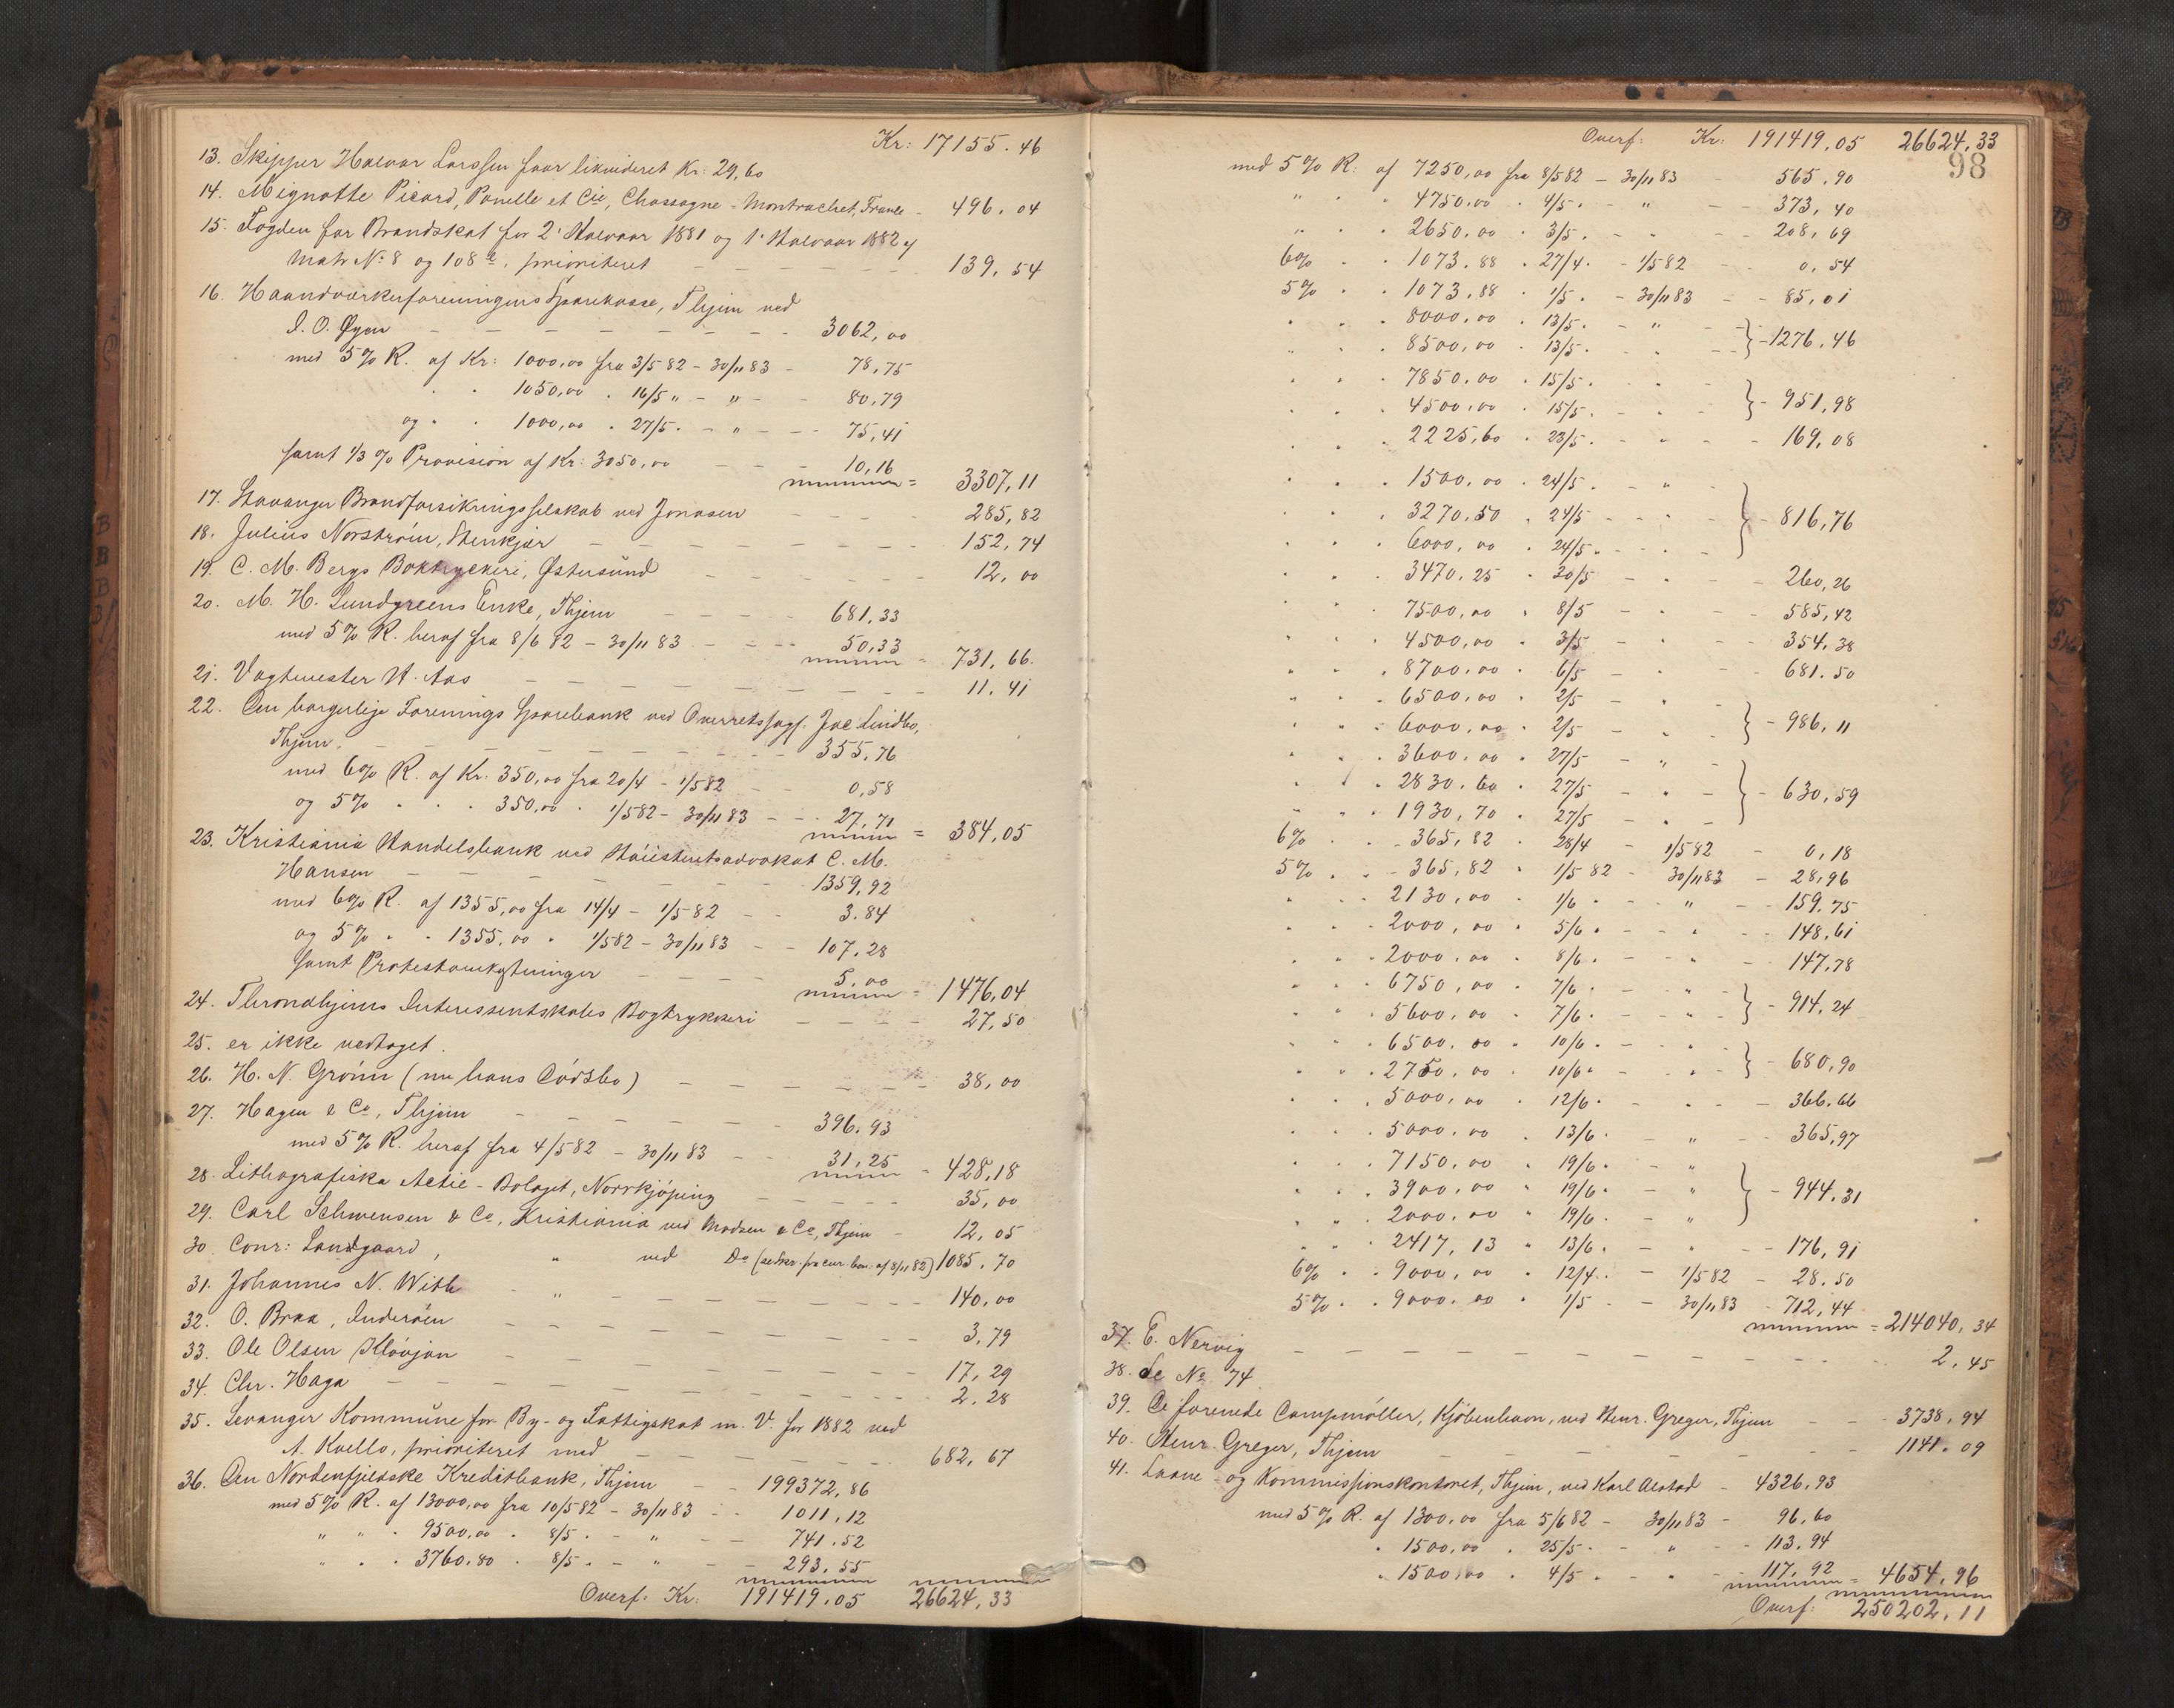 Kr: 17155.46
13. Skipper Halvar Larssen faar likvideret Kr: 29,60
14. Mignotte Picard, Ponelle et Cie, Chassagne-Montrachet, France - 496.04
15. Fogden for Brandskat for 2' Halvaar 1881 og 1' Halvaar 1882 af
Matr No 8 og 108 b, prioriteret - - - 139.54
16. Haandværkerforeningens Sparekasse, Thjem ved
I. O. Øyen - - - 3062,00
med 5% R. af Kr: 1000,00 fra 3/5 82 - 30/11 83 - 78,75
" " 1050,00 " 16/5 " - " - - 80,79
og " " 1000,00 " 27/5 " - " - - 75,41
samt 1/3 % Provision af Kr: 3050,00 - - 10,16 = 3307,11
17. Stavanger Brandforsikringsselskab ved Jonasen - - - 285,82
18. Julius Norström, Stenkjær - - - 152,74
19. C. M. Bergs Boktryckeri, Østersund - - - 12,00
20. M. H. Lundgreens Enke, Thjem - - - 681,33
med 5% R. heraf fra 8/6 82 - 30/11 83 - - 50,33 = 731,66.
21. Vagtmester H. Aas - - - 11.41
22. Den borgerlige Forenings Sparebank ved Overretssagf. Jac Lindbo,
Thjem. - - - 355,76
med 6% R. af Kr: 350,00 fra 20/4 - 1/5 82 - - 0,58
og 5% " " " 350,00 " 1/5 82 - 30/11 83 - - 27,71 = 384,05
23. Kristiania Handelsbank ved Höiesteretsadvokat C. M.
Hansen - - - 1359,92
med 6% R. af 1355,00 fra 14/4 - 1/5 82 - - 3.84
og 5% " " 1355.00 " 1/5 82 - 30/11 83 - - 107.28
samt Protestomkostninger - - - 5,00 = 1476,04
24. Throndhjems Interessentskabs Bogtrykkeri - - - 27,50
25. er ikke vedtaget.
26. H. N. Grönn (nu hans Dödsbo) - - - 38,00
27. Hagen & Co, Thjem - - - 396.93
med 5% R. heraf fra 4/5 82 - 30/11 83 - - 31,25 = 428,18
28. Lithografiska Actie-Bolaget, Norrkjöping - - - 35,00
29. Carl Schwensen & Co, Kristiania ved Madsen & Co, Thjem - 12,05
30. Conr: Landgaard, " ved Do 1085.70
31. Johannes N. With - " - - - 140,00
32. O. Braa, Inderöen - - - 3,79
33. Ole Olsen Klövjan - - - 17,29
34. Chr. Haga - - - 2.28
35. Levanger Kommune for By- og Fattigskat m. V. for 1882 ved
A. Kvello, prioriteret med - - - 682,67
36. Den Nordenfjeldske Kreditbank, Thjem - - 199372,86
med 5% R. af 13000,00 fra 10/5 82 - 30/11 83 - - 1011,12
" " " 9500,00 " 8/5 " - " - - 741.52
" " " 3760.80 " 8/5 " - " - - 293.55
Overf: Kr: 191419.05 26624,33
Overf: Kr: 191419.05 26624,33
98
med 5% R. af 7250,00 fra 8/5 82 - 30/11 83 - 565.90
" " " 4750.00 " 4/5 " - " - - 373,40
" " " 2650.00 " 3/5 " - " - - 208,69
6% " " 1073.88 " 27/4 " - 1/5 82 - 0.54
5% " " 1073.88 " 1/5 " - 30/11 83 - - 85,01
" " " 8000.00 " 13/5 " - " - }
" " " 8500,00 " 13/5 " - " - - } - 1276.46
" " " 7850.00 " 15/5 " - " - }
" " " 4500.00 " 15/5 " - " - } - 951,98
" " " 2225,60 " 23/5 " - " - - 169,08
" " " 1500,00 " 24/5 " - " - }
" " " 3270,50 " 24/5 - - " - } - 816,76
" " " 6000,00 " 24/5 " - - " - }
" " " 3470.25 " 30/5 - " - - 260,26
" " " 7500,00 " 8/5 - " - - 585,42
" " " 4500,00 " 3/5 - " - - 354.38
" " " 8700.00 " 6/5 - " - 681.50
" " " 6500,00 " 2/5 - " - }
" " " 6000,00 " 2/5 - " - } - 986,11
" " " 3600.00 " 27/5 - " - }
" " " 2830.60 " 27/5 - " - } - 630,59
" " " 1930,70 " 27/5 - " - }
6% " " 365,82 " 28/4 - 1/5 82 - 0,18
5% " " 365,82 " 1/5 82 - 30/11 83 - 28,96
" " " 2130,00 " 1/6 " - " - 159.75
" " " 2000,00 " 5/6 " - " - - 148,61
" " " 2000.00 " 8/6 " - " - 147,78
" " " 6750,00 " 7/6 " - " - }
" " " 5600,00 " 7/6 " - " - } - 914,24
" " " 6500.00 " 10/6 " - " - }
" " " 2750.00 " 10/6 " - " - } - 680,90
" " " 5000,00 " 12/6 " - " - - 366.66
" " " 5000.00 " 13/6 " - " - - 365,97
" " " 7150,00 " 19/6 " - " }
" " " 3900,00 " 19/6 " - " } - 944,31
" " " 2000,00 " 19/6 " - " }
" " " 2417,13 " 13/6 " - " - - 176,91
6% " " 9000,00 " 12/4 " - 1/5 82 - 28.50
5% " " 9000.00 " 1/5 - 30/11 83 - 712,44 = 214040,34
37. E. Nervig - - - 2,45
38. se No 74
39. De forenede Dampmöller, Kjöbenhavn, ved Henr. Greger, Thjem - - - 3738,94
40. Henr. Greger, Thjem - - - 1141.09
41. Laane- og Kommissionskontoret, Thjem, ved Karl Aestad - 4326,93
med 5% R. af 1300,00 fra 5/6 82 - 30/11 83 - 96,60
" 1500,00 " 25/5 " - " - - 113,94
" 1500,00 " 4/5 " - " - - 117.92 = 4654.96
Overf: 250202.11